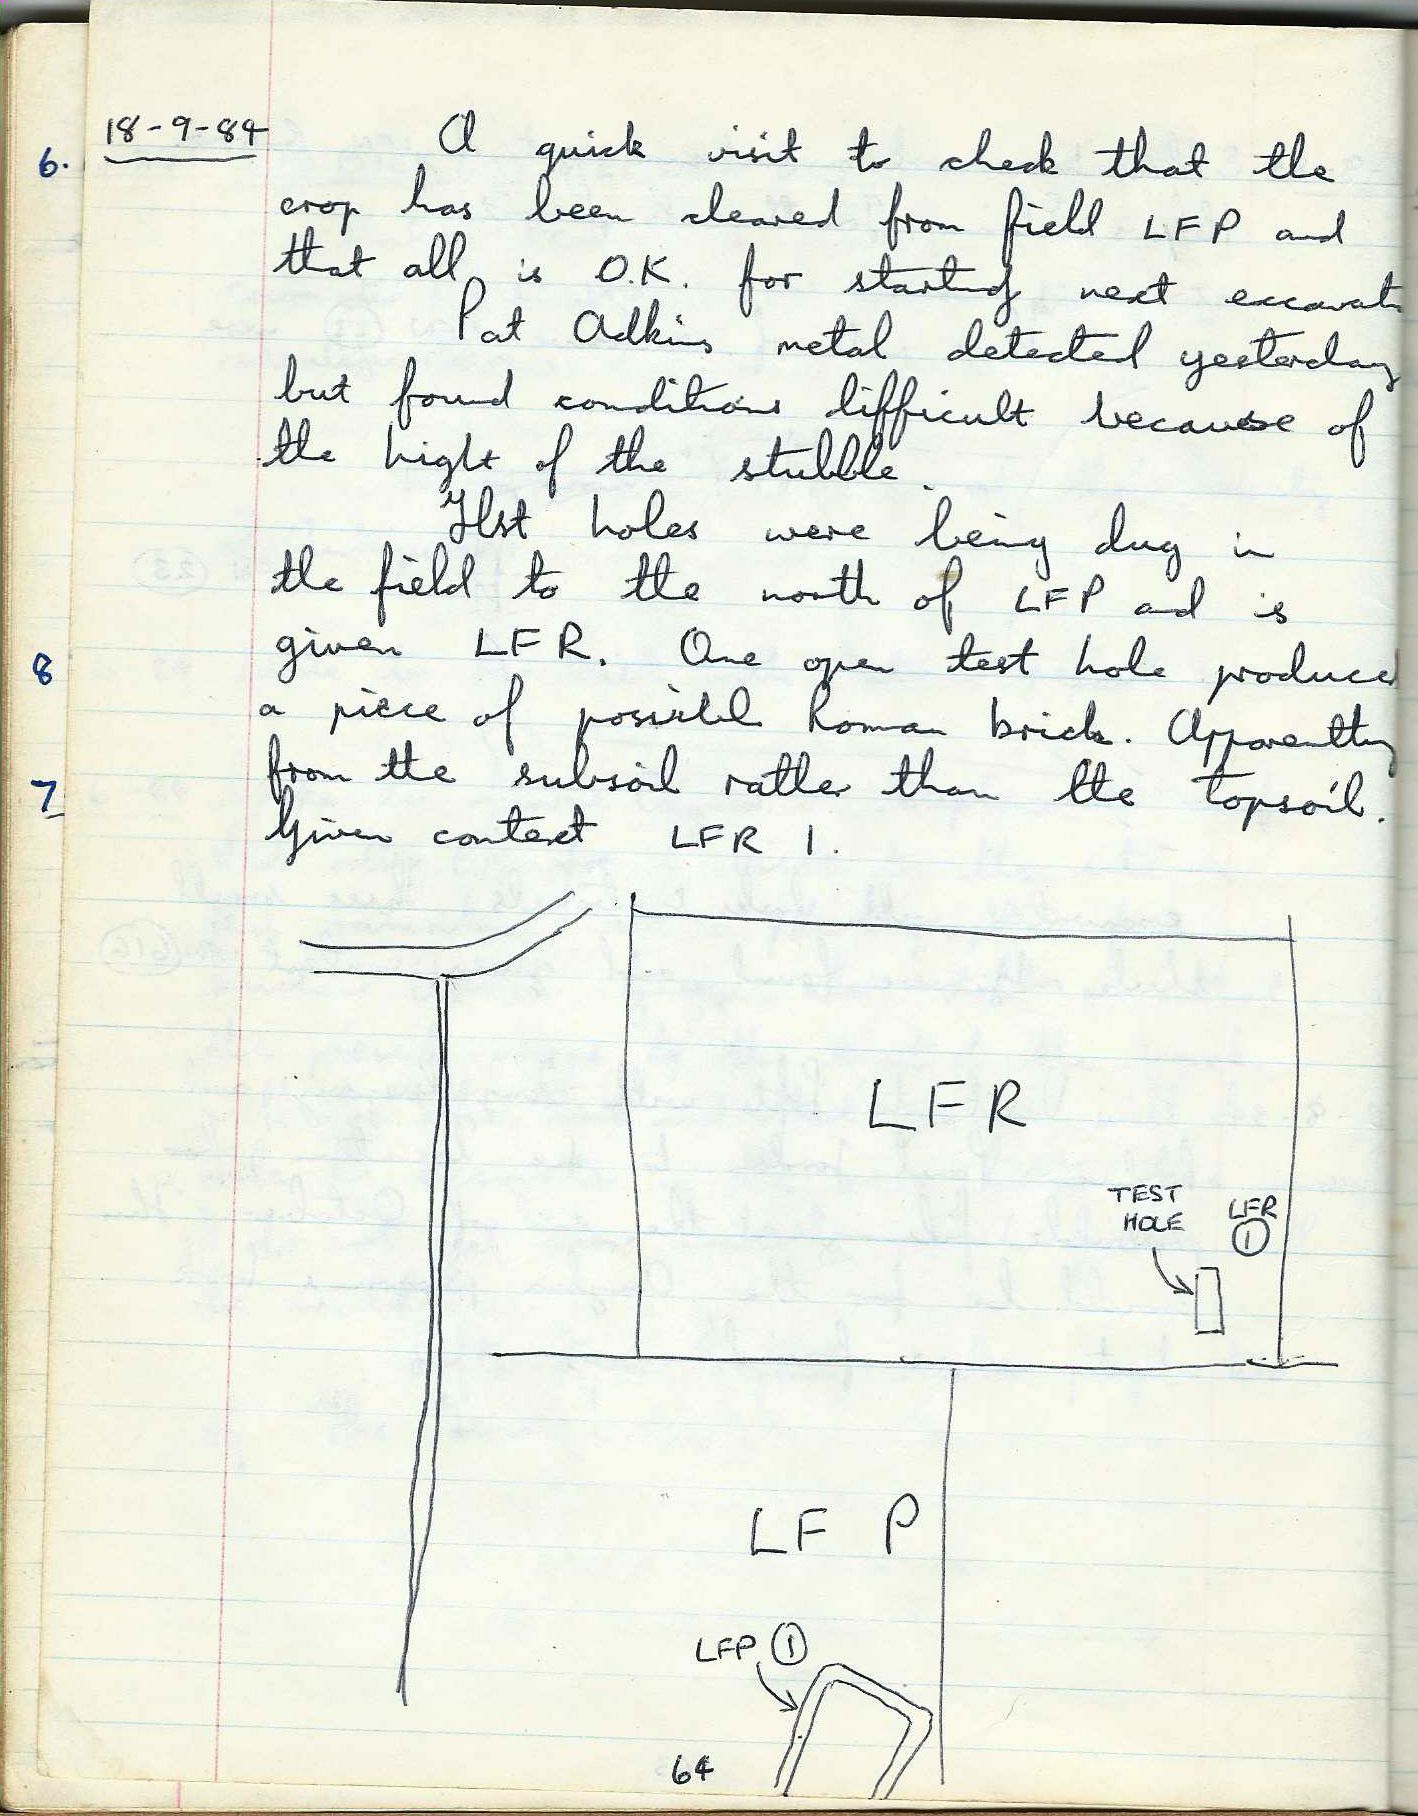 18-9-84
6.
A quick visit to check that the
crop has been cleared from field LFP and
that all is O.K. for starting next excavat
Pat Adkins metal detected yesterday
but found conditions difficult because of
the hight of the stubble.
Test holes were being dug in
the field to the north of LFP and is
8
given LFR. One open test hole produced
a piece of possible Roman brick. Apparently
7
from the subsoil rather than the topsoil.
Given context LFR 1.
LFR
TEST
HOLE
LFR
1
LF P
LFP 1
64